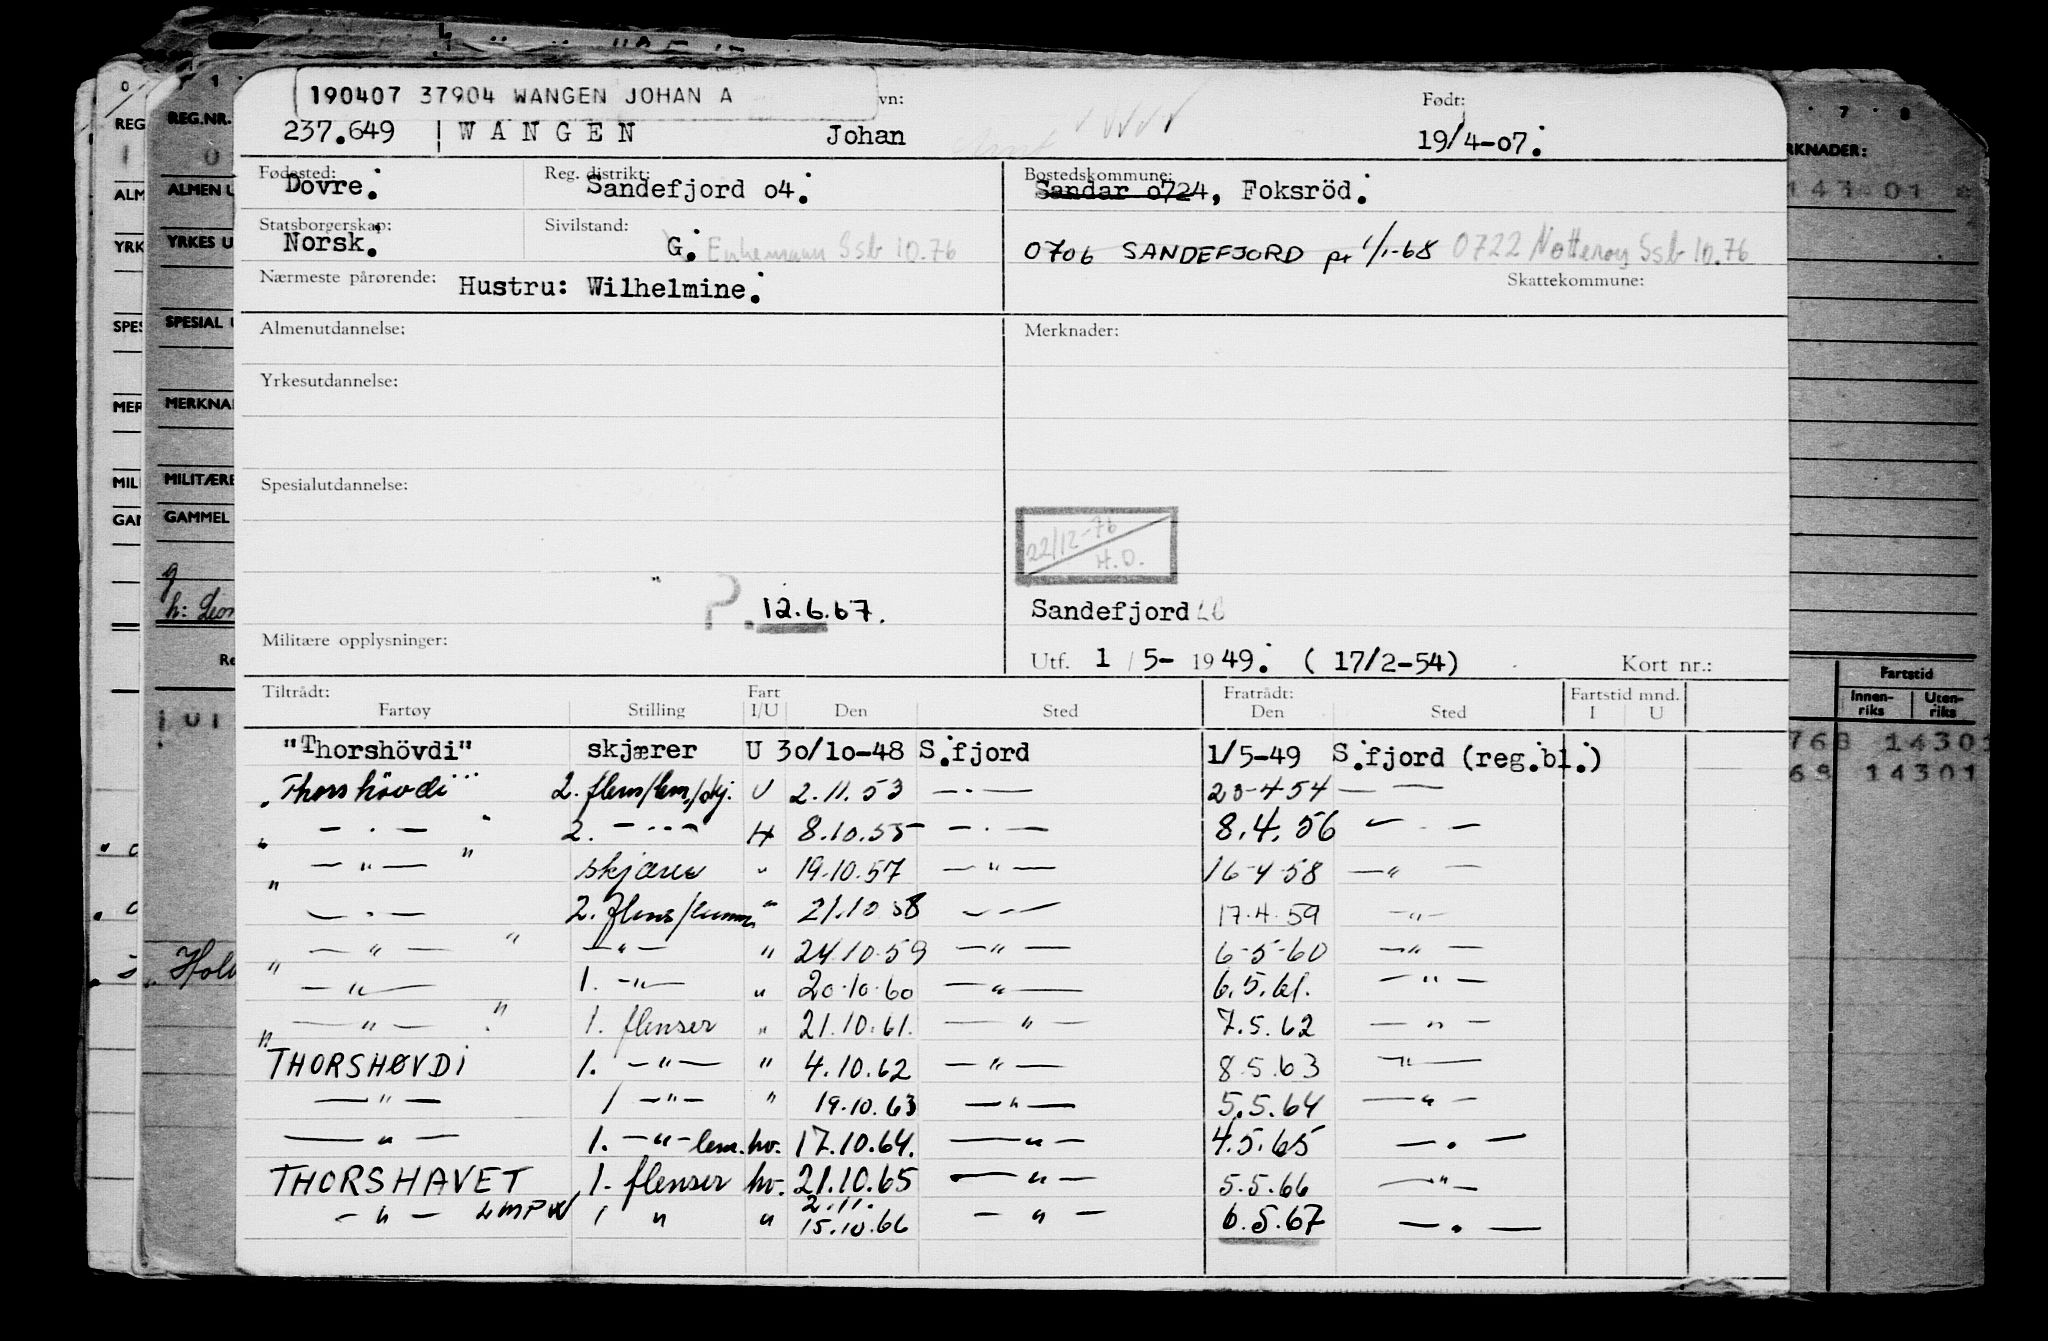 190407 37904 WANGEN JOHAN A
vn: Født:
237.649 WANGEN Johan 19/4-07.
Fødested: Reg. distrikt: Bostedskommune:
Dovre. Sandefjord 04. Sandar 0724, Foksröd.
Statsborgerskap: Sivilstand:
Norsk. G. Enkemann Ssb 10.76 0706 SANDEFJORD pr 1/1-68 0722 Nøtterøy Ssb 10.76
Nærmeste pårørende: Hustru: Wilhelmine. Skattekommune:
Almenutdannelse: Merknader:
Yrkesutdannelse:
Spesialutdannelse:
22/12-76
H.O.
?. 12.6.67. Sandefjord
Militære opplysninger: Utf. 1/5-1949. (17/2-54) Kort nr.:
Tiltrådt: Fart Fratrådt: Fartstid mnd.
Fartøy Stilling I/U Den Sted Den Sted I U
"Thorshövdi" skjærer U 30/10-48 S.fjord 1/5-49 S.fjord (reg.bl.)
"Thorshövdi" 2. flens/lem/skj. U 2.11.53 — . — 23-4 54 — —
" — . — " 2. — . . — 8.10.55 — . — 8.4.56 — . —
" — " — " skjærer " 19.10.57 — " — 16-4-58 — " —
— . — 2. flens/lemm " 21.10 58 — . — 17.4.59 — " —
" — " — " — " — " 24.10.59 — " — 6-5-60 — " —
— " — 1. — " — " 20.10.60 — " — 6.5.61. — " —
" — " — " 1. flenser " 21.10.61. — " — 7.5.62 — " —
THORSHØVDI 1. — " — " 4.10.62 — " — 8.5.63 — " —
— " — 1 — " — " 19.10.63 — " — 5.5.64 — " —
— " — 1. — " — lem. hv. 17.10.64. — " — 4.5.65 — . —
THORSHAVET 1. flenser hv. 21.10.65 — " — 5.5.66 — " —
2.11.
— " — LMPW 1 " " 15.10.66 — " — 6.5.67 — . —
REG.NR.
ALMEN U
YRKES U
SPESIAL U
MERKNA
MILITÆRE
GAMMEL
REG
ALM
YRK
SPES
MER
MIL
GAM
RKNADER:
Fartstid
Innen-riks Uten-riks
768 14301
68 14301